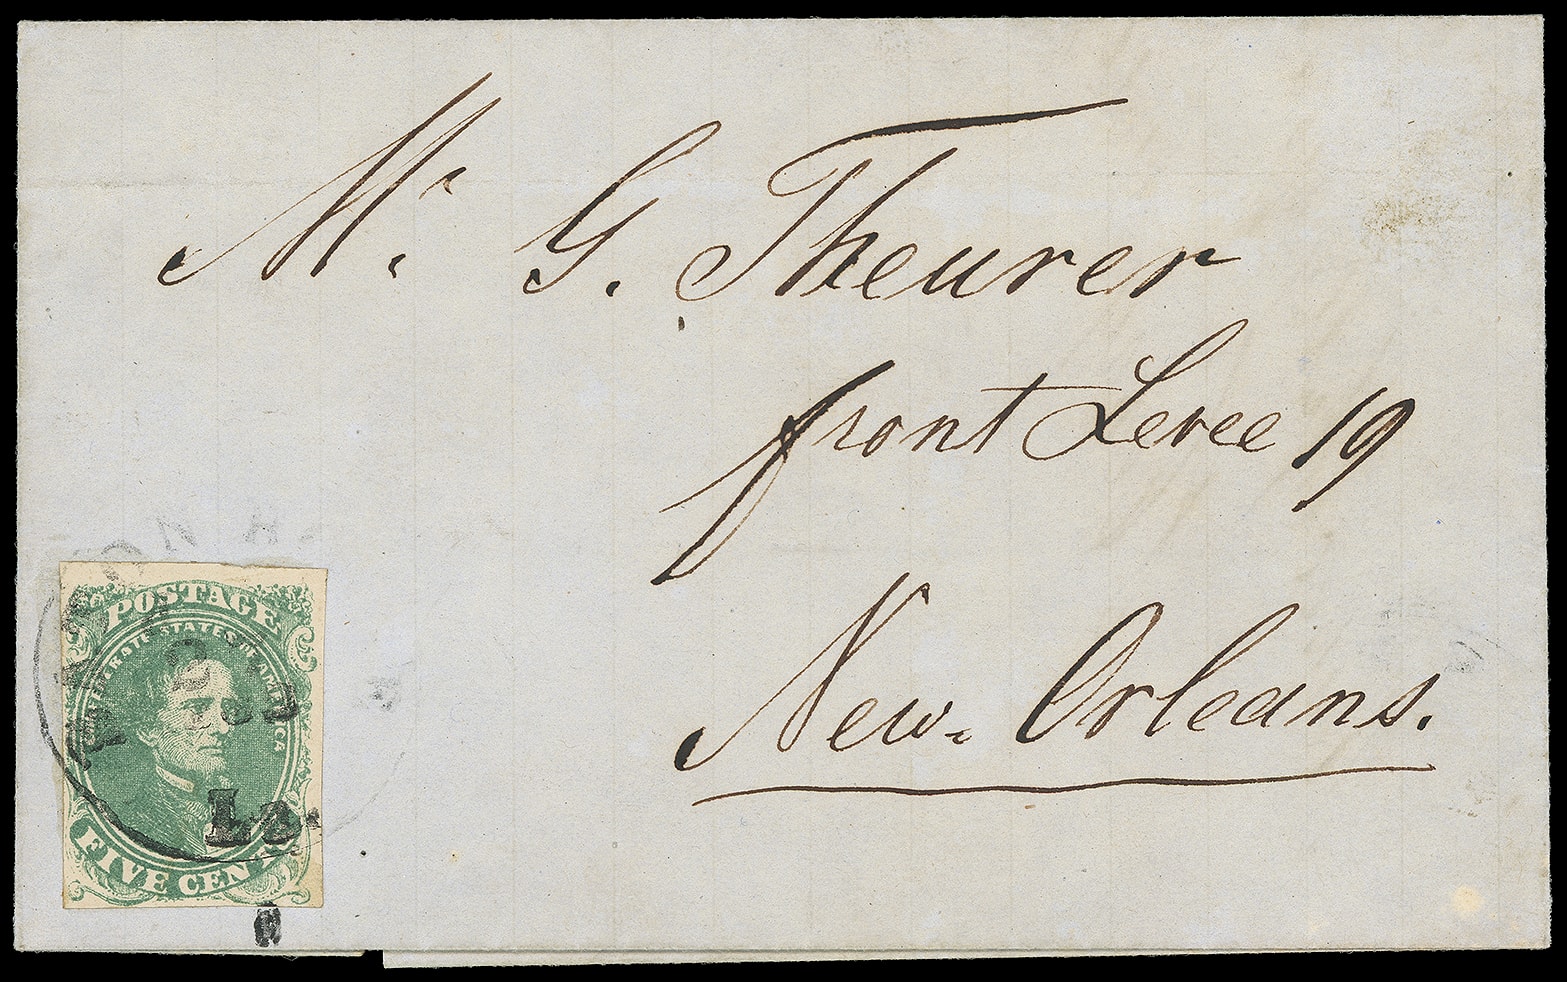 Mr. G. Theurer
front Levee 19
New= Orleans.
POSTAGE
CONFEDERATE STATES OF AMERICA
FIVE CENT
La.